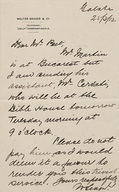 WALTER SEAGER & Co
Galata
21/5/12
Dear Mr Peet,
Mr Martin
is at Bucarest but
I am sending his
assistant, Mr Cerutti,
who will be at the
Bible House tomorrow
Tuesday morning at
9 o'clock.
Please do not
pay him and I would
deem it a favour to
render you this trivial
service.